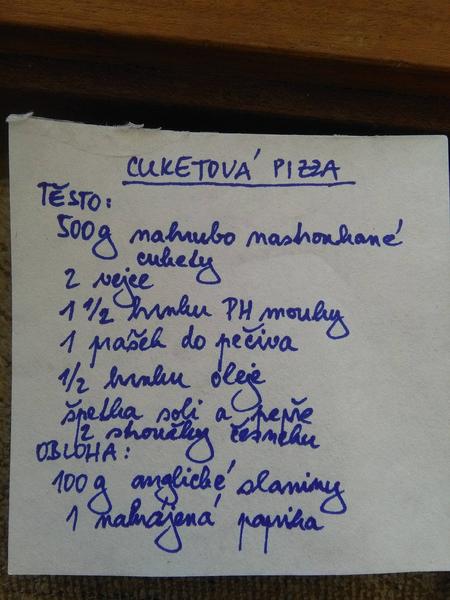 CUKETOVÁ PIZZA
TĚSTO:
500g nahrubo nastrouhané
cukety
2 vejce
1 1/2 hrnku PH mouky
1 prášek do pečiva
1/2 hrnku oleje
špetka soli a pepře
2 stroužky česneku
OBLOHA:
100g anglické slaniny
1 nakrájená paprika